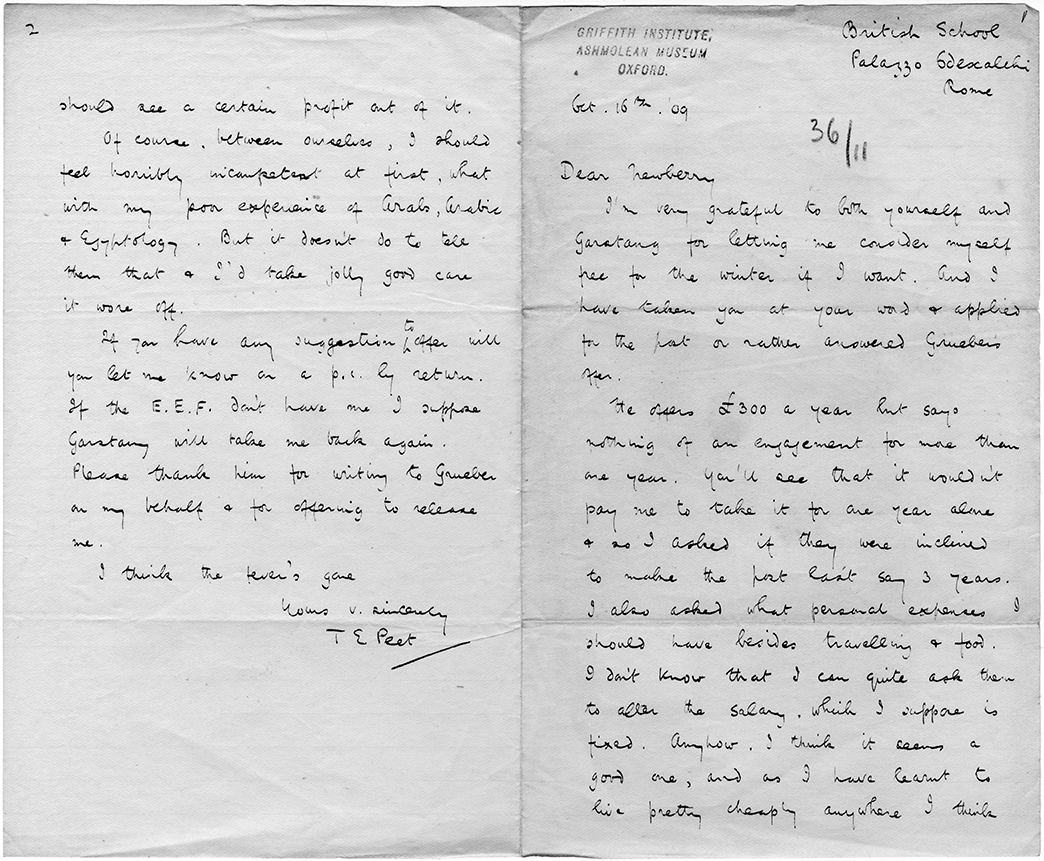 1
British School
Palazzo Odescalchi
Rome
GRIFFITH INSTITUTE,
ASHMOLEAN MUSEUM
OXFORD.
Oct. 16th. '09
36/11
Dear Newberry
I'm very grateful to both yourself and
Garstang for letting me consider myself
free for the winter if I want. And I
have taken you at your word & applied
for the post or rather answered Grueber's
offer.
He offers £300 a year but says
nothing of an engagement for more than
one year. You'll see that it wouldn't
pay me to take it for one year alone
& so I asked if they were inclined
to make the post last say 3 years.
I also asked what personal expenses I
should have besides travelling & food.
I don't know that I can quite ask them
to alter the salary, which I suppose is
fixed. Anyhow, I think it seems a
good one, and as I have learnt to
live pretty cheaply anywhere I think
2
should see a certain profit out of it.
Of course, between ourselves, I should
feel horribly incompetent at first, what
with my poor experience of Arabs, Arabic
& Egyptology. But it doesn't do to tell
them that & I'd take jolly good care
it wore off.
If you have any suggestion to offer will
you let me know on a p.c. by return.
If the E.E.F. don't have me I suppose
Garstang will take me back again.
Please thank him for writing to Grueber
on my behalf & for offering to release
me.
I think the fever's gone
Yours v. sincerely
T E Peet